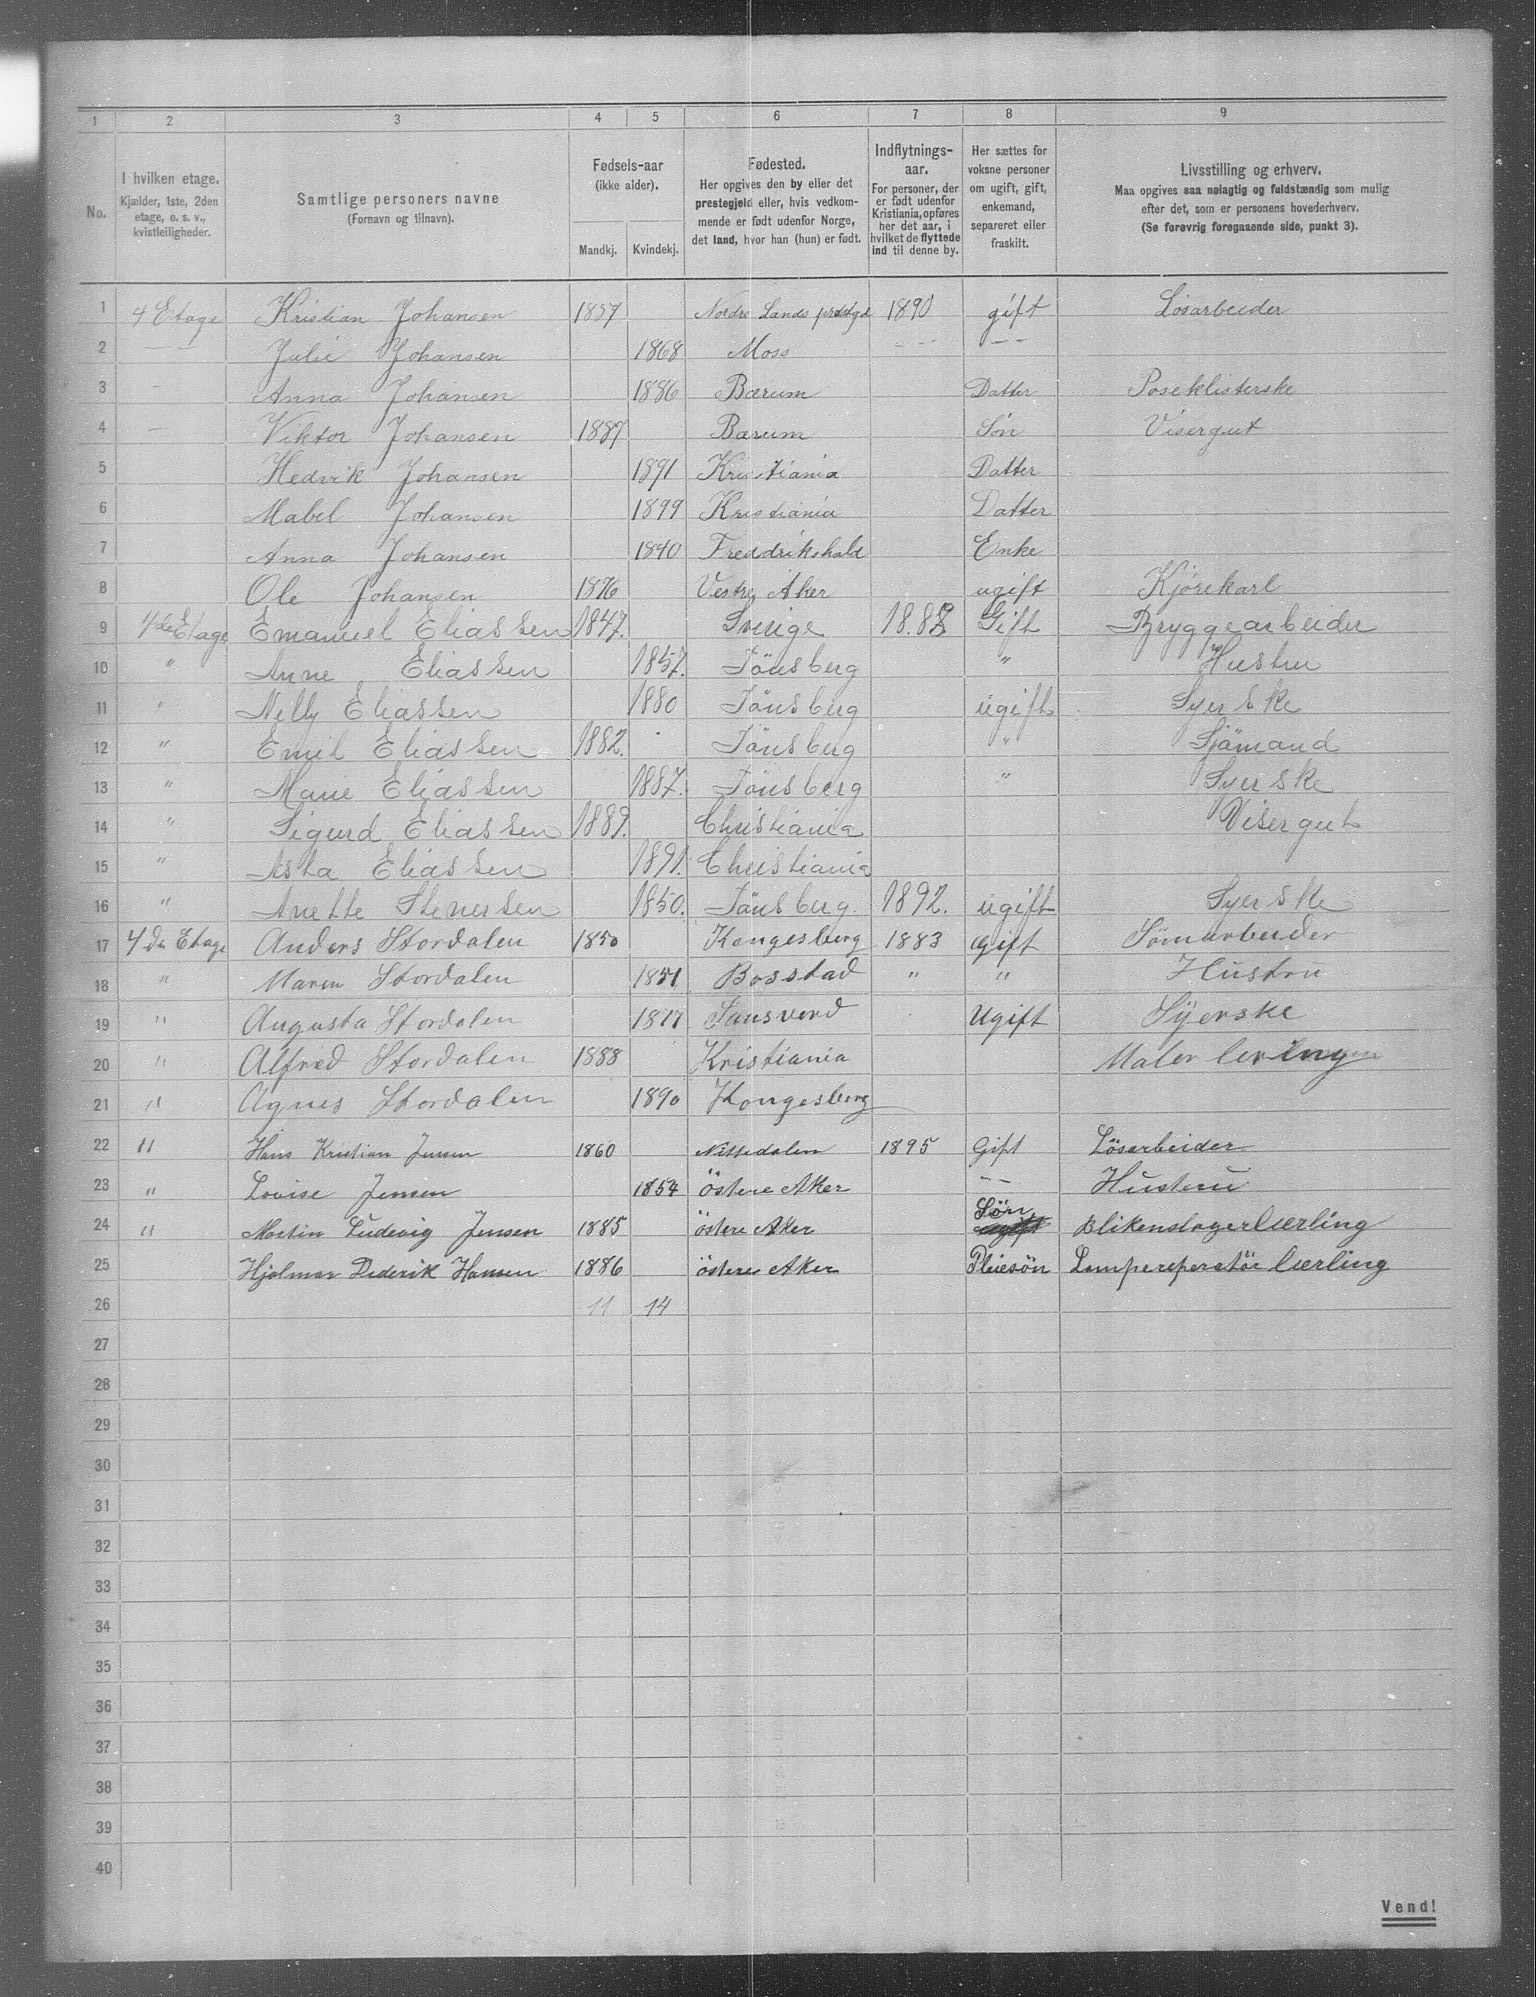 1 2 3 4 5 6 7 8 9
No. I hvilken etage. Kjælder, 1ste, 2den etage, o. s. v., kvistleiligheder. Samtlige personers navne (Fornavn og tilnavn). Fødsels-aar (ikke alder). Mandkj. Kvindekj. Fødested. Her opgives den by eller det prestegjeld eller, hvis vedkommende er født udenfor Norge, det land, hvor han (hun) er født. Indflytnings-aar. For personer, der er født udenfor Kristiania, opføres her det aar, i hvilket de flyttede ind til denne by. Her sættes for voksne personer om ugift, gift, enkemand, separeret eller fraskilt. Livsstilling og erhverv. Maa opgives saa nøiagtig og fuldstændig som mulig efter det, som er personens hovederhverv. (Se forøvrig foregaaende side, punkt 3).
1 4 Etage Kristian Johansen 1857 Nordre Lands prstgd 1890 gift Løsarbeider
2 — — Julie Johansen 1868 Moss — — — —
3 — Anna Johansen 1886 Bærum Datter Poseklisterske
4 — Viktor Johansen 1887 Bærum Søn Visergut
5 Hedvik Johansen 1891 Kristiania Datter
6 Mabel Johansen 1899 Kristiania Datter
7 Anna Johansen 1840 Freddrikshald Enke
8 Ole Johansen 1876 Vestre Aker ugift Kjørekarl
9 4de Etage Emanuel Eliassen 1847. Sverige 18.88 Gift Bryggearbeider
10 " Anne Eliassen 1857. Tönsberg " Hustru
11 " Nelly Eliassen 1880 Tönsberg ugift Syerske
12 " Emil Eliassen 1882. Tönsberg " Sjömand
13 " Marie Eliassen 1887. Tönsberg " Syerske
14 " Sigurd Eliassen 1889. Christiania Visergut
15 " Asta Eliassen 1891. Christiania
16 " Anette Stenersen 1850. Tönsberg. 1892. ugift Syerske
17 4de Etage Anders Stordalen 1850 Kongesberg 1883 gift Sömarbeider
18 " Maren Stordalen 1851 Bosstad " " Hustru
19 " Augusta Stordalen 1877 Sansverd Ugift Syerske
20 " Alfred Stordalen 1888 Kristiania Maler
21 " Agnes Stordalen 1890 Kongesberg
22 " Hans Kristian Jensen 1860 Nittedalen 1895 Gift Lösarbeider
23 " Lovise Jensen 1854 Östere Aker — — Husteru
24 " Martin Ludevig Jensen 1885 östere Aker Sön Blikenslager Lærling
25 Hjalmar Diderik Hansen 1886 östere Aker Pleiesön Lampereperatör Lærling
26 11 14
27
28
29
30
31
32
33
34
35
36
37
38
39
40
Vend!